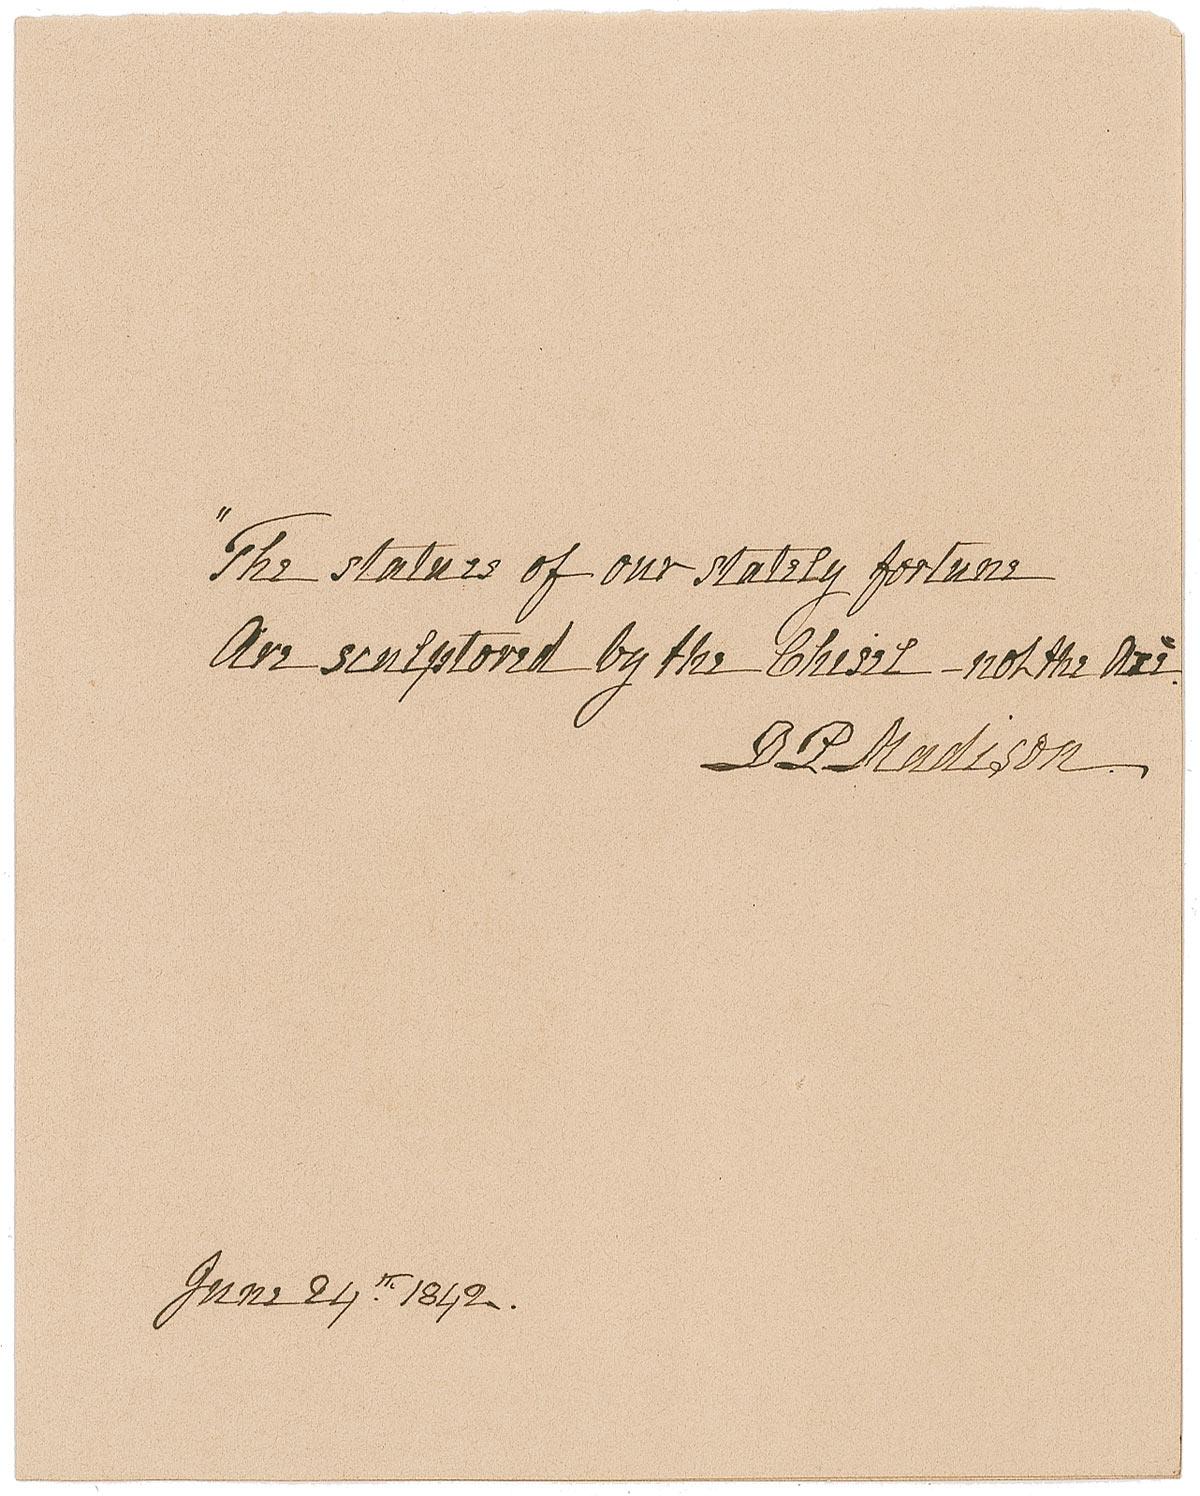 "The statues of our stately fortune
Are sculptored by the Chisel – not the Axe.
D P Madison.
June 24th. 1842.